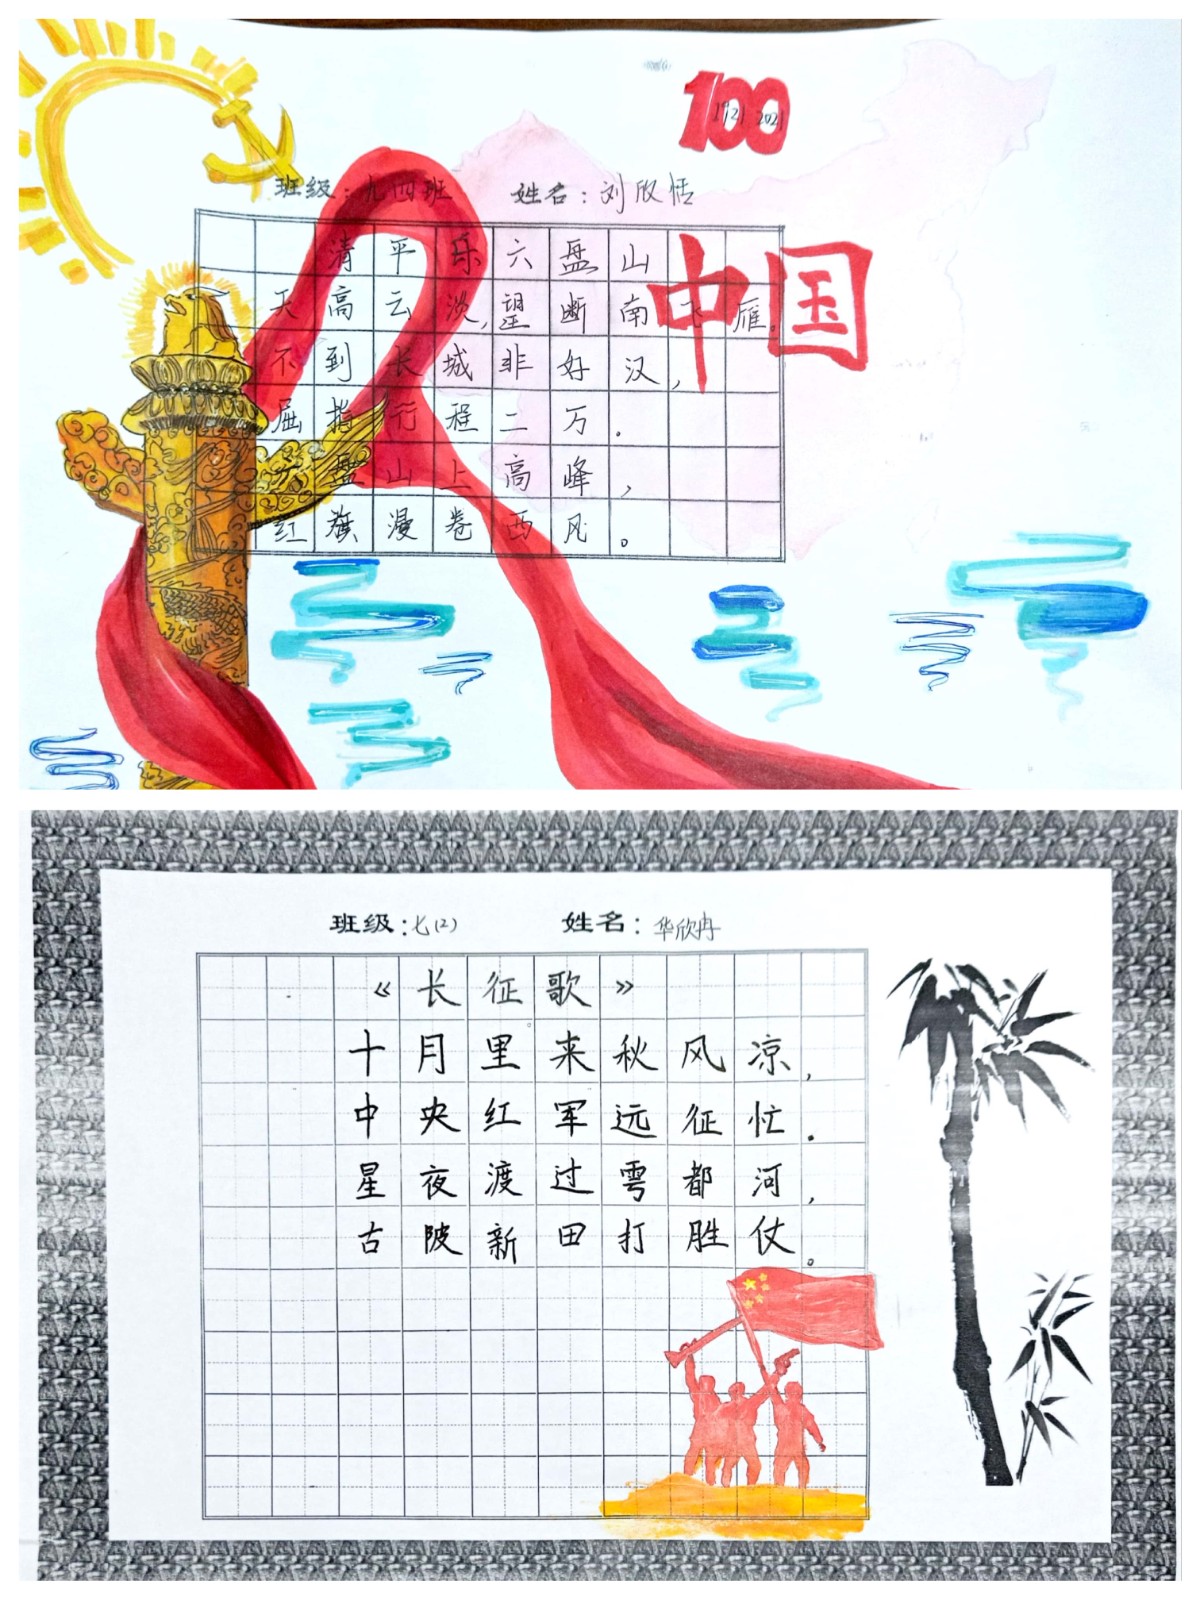 100
1921 2021
班级：九四班 姓名：刘欣恬
中国
清平乐六盘山
天高云淡，望断南飞雁。
不到长城非好汉，
屈指行程二万。
六盘山上高峰，
红旗漫卷西风。
班级：七（2） 姓名：华欣冉
《长征歌》
十月里来秋风凉，
中央红军远征忙。
星夜渡过雩都河，
古陂新田打胜仗。